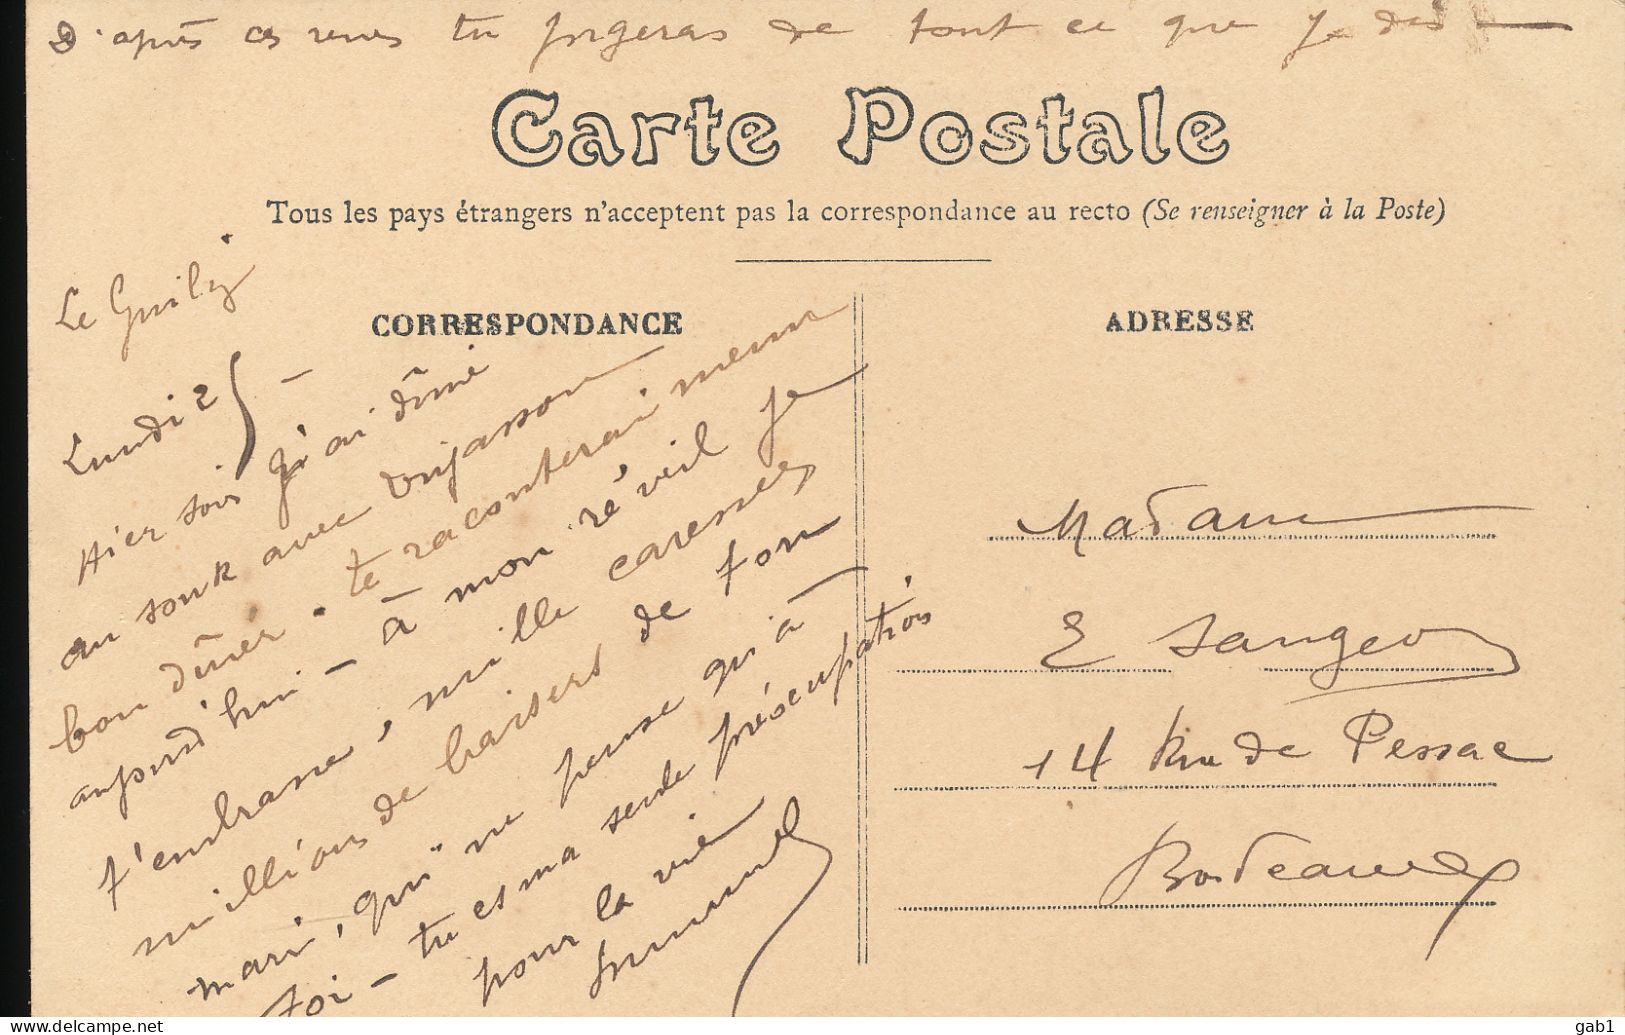 D'après ces vues tu jugeras de tout ce que je dis
Carte Postale
Tous les pays étrangers n'acceptent pas la correspondance au recto (Se renseigner à la Poste)
CORRESPONDANCE
Le
Lundi 25 -
Hier soir j'ai dîné
au souk avec
bon dîner. te raconterai menu
aujourd'hui - à mon réveil je
t'embrasse, mille caresses
millions de baisers de ton
mari, qui ne pense qu'à
toi - tu es ma seule préocupation
pour la vie
ADRESSE
Madame
E
14 Rue de Pessac
Bordeaux
delcampe.net
gab1